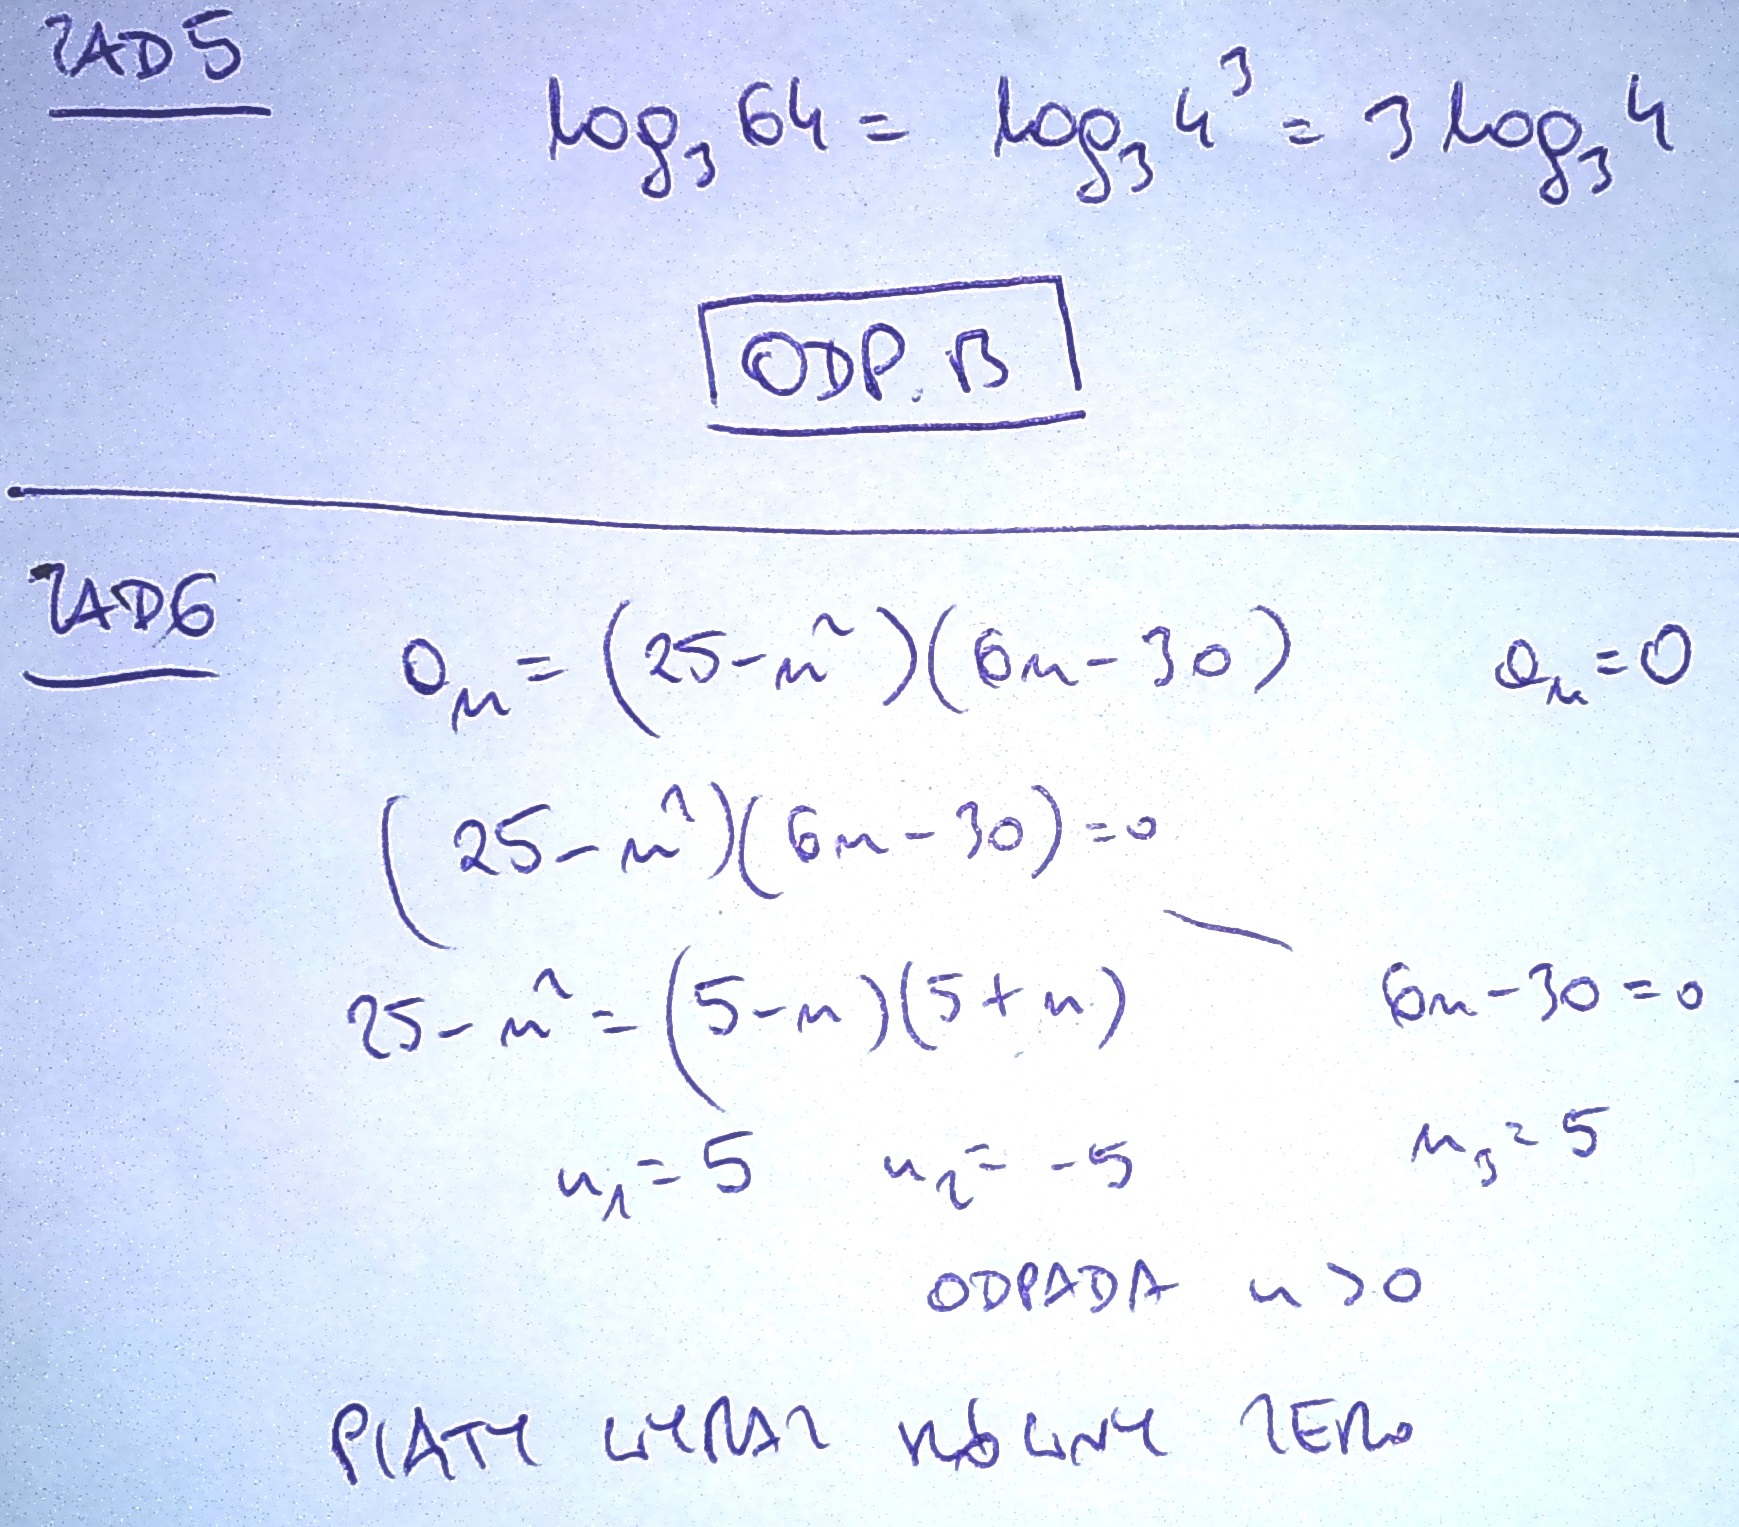 ZAD 5
log₃ 64 = log₃ 4³ = 3 log₃ 4
ODP. B
ZAD6
aₙ = (25-n²)(6n-30) aₙ=0
(25-n²)(6n-30)=0
25-n² = (5-n)(5+n) 6n-30=0
n₁=5 n₂=-5 n₃=5
ODPADA n>0
PIATY WYRAZ RÓWNY ZERO